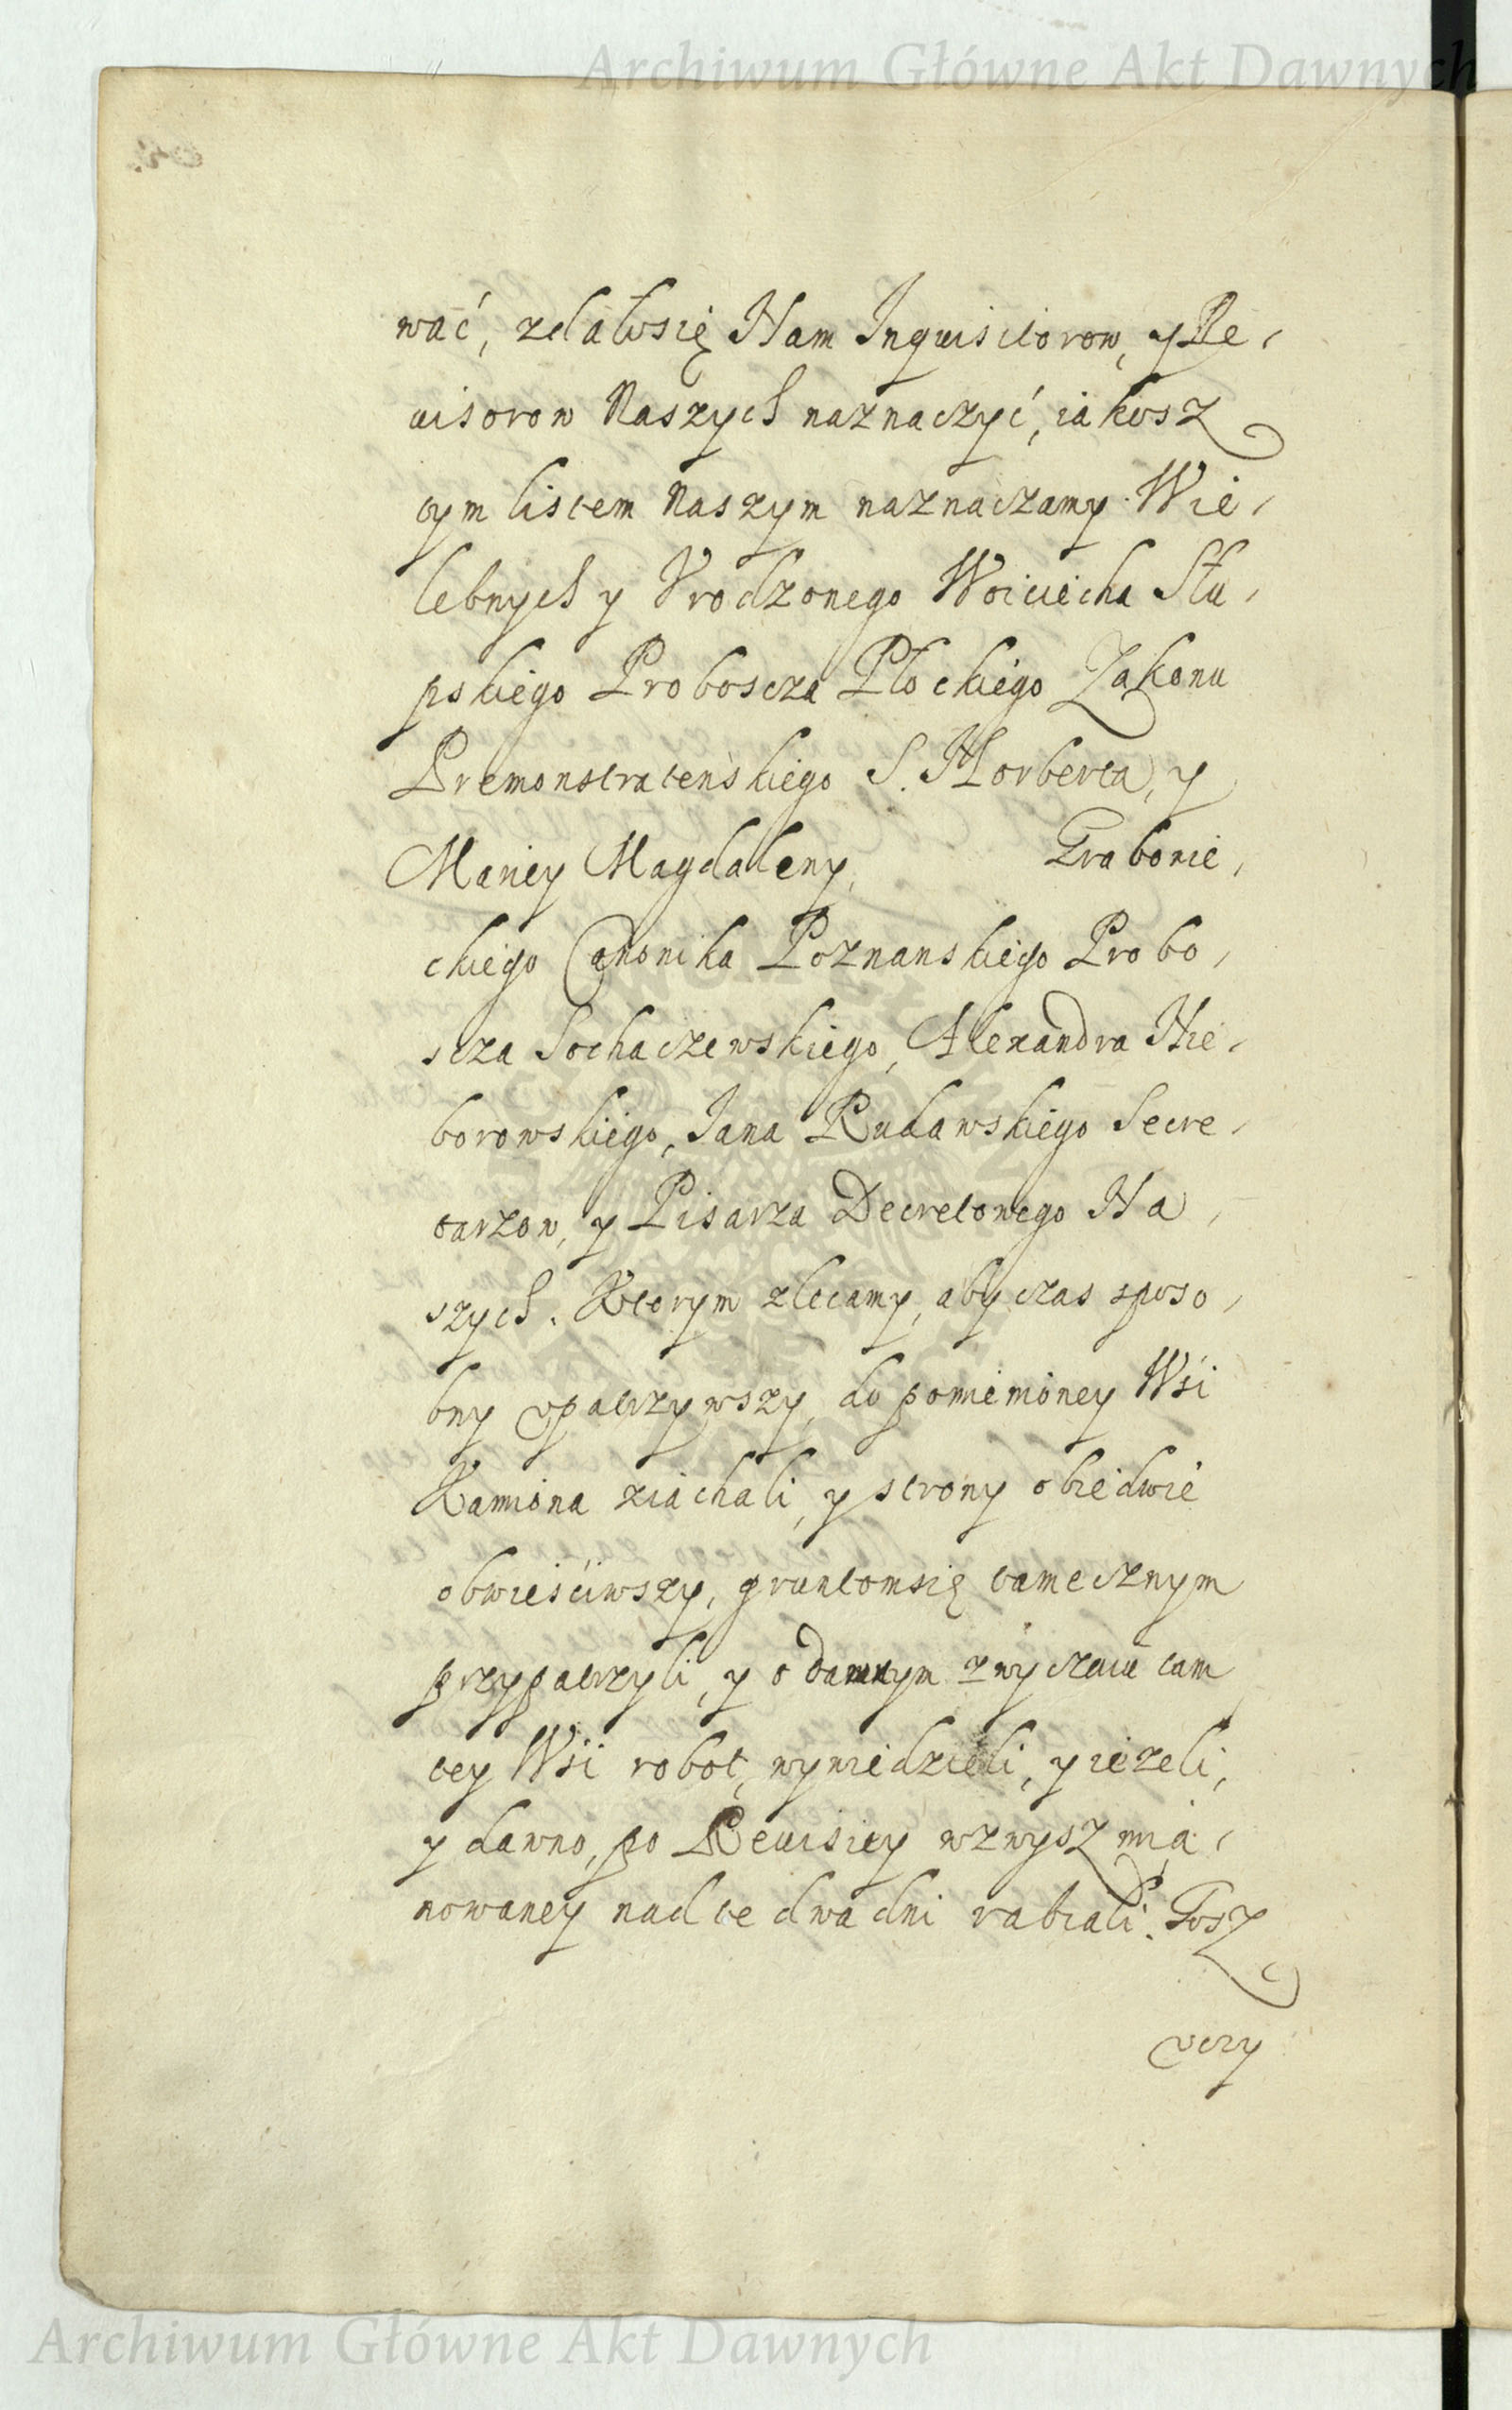 Archiwum Główne Akt Dawnych
wać, zdałosię Nam Inquisitorow, y Re-
uisorow Naszych naznaczyć, iakosz
tym listem Naszym naznaczamy Wie-
lebnych y Vrodzonego Woiciecha Słu-
pskiego Proboscza Płockiego Zakonu
Premonstrateńskiego S. Norberta, y
Mariey Magdaleny, Grabowie-
ckiego Canonika Poznanskiego Probo-
scza Sochaczewskiego, Alexandra Nie-
borowskiego, Jana Rudawskiego Secre-
tarzow, y Pisarza Decretowego Na-
szych. Ktorym zlecamy, aby czas sposo-
bny vpatrzywszy, do pomienioney Wśi
Kamiona ziachali, y strony obiedwie
obwieściwszy, gruntomsię tamecznym
przypatrzyli, y o dawnym zwyczaiu tam
tey Wśi robot, wywiedzieli, y ieżeli,
y dawno, po Reuisiey wzwysz mia-
nowaney nad te dwa dni rabiali. Tosz
vczy
Archiwum Główne Akt Dawnych